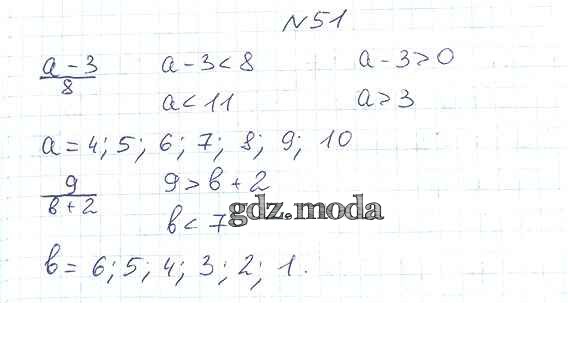 №51
a - 3 / 8 a - 3 < 8 a - 3 > 0
a < 11 a > 3
a = 4; 5; 6; 7; 8; 9; 10
9 / b + 2 9 > b + 2
b < 7
gdz.moda
b = 6; 5; 4; 3; 2; 1.